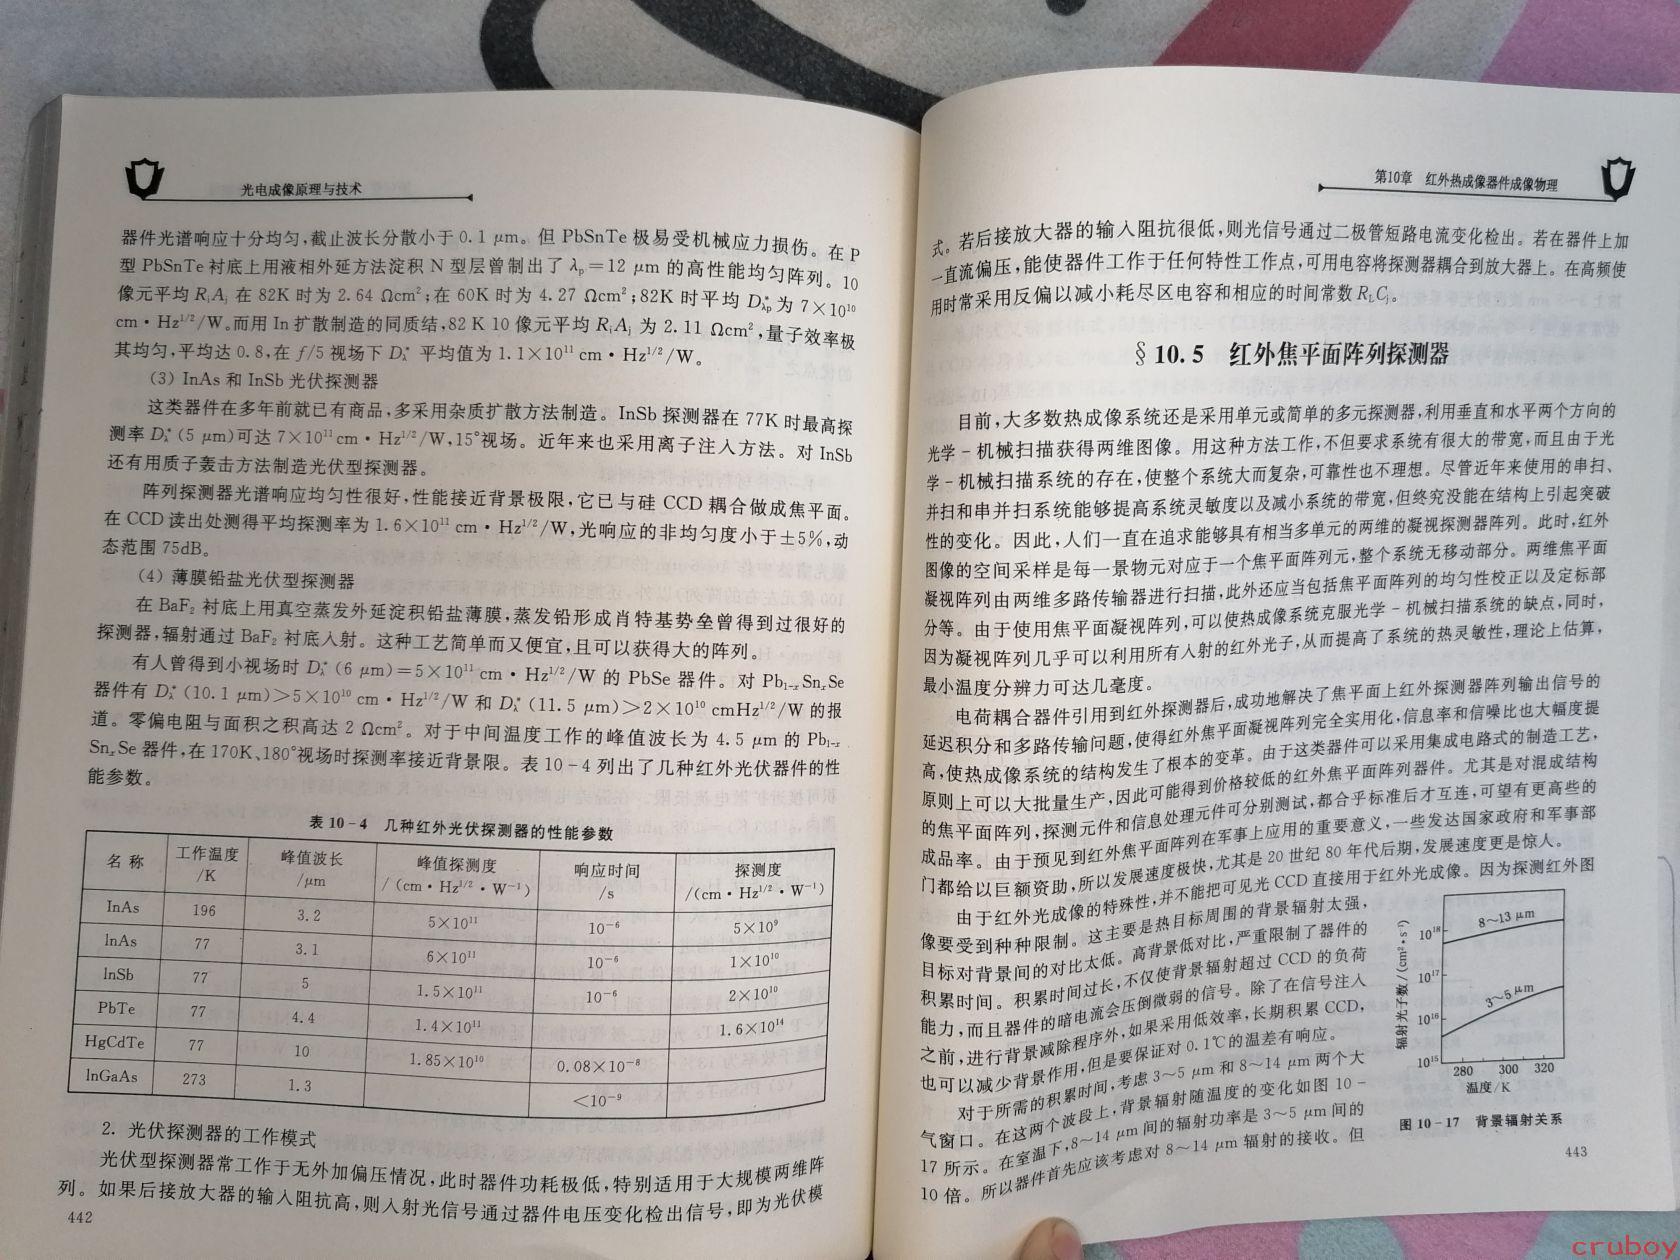 光电成像原理与技术
器件光谱响应十分均匀,截止波长分散小于0.1 μm。但PbSnTe极易受机械应力损伤。在P
型PbSnTe衬底上用液相外延方法淀积N型层曾制出了λp=12 μm的高性能均匀阵列。10
像元平均RjAj在82K时为2.64 Ωcm²;在60K时为4.27 Ωcm²;82K时平均D*λp为7×10¹⁰
cm·Hz¹/²/W。而用In扩散制造的同质结,82 K 10像元平均RjAj为2.11 Ωcm²,量子效率极
其均匀,平均达0.8,在f/5视场下D*λ平均值为1.1×10¹¹ cm·Hz¹/²/W。
(3) InAs和InSb光伏探测器
这类器件在多年前就已有商品,多采用杂质扩散方法制造。InSb探测器在77K时最高探
测率D*λ(5 μm)可达7×10¹¹cm·Hz¹/²/W,15°视场。近年来也采用离子注入方法。对InSb
还有用质子轰击方法制造光伏型探测器。
阵列探测器光谱响应均匀性很好,性能接近背景极限,它已与硅CCD耦合做成焦平面。
在CCD读出处测得平均探测率为1.6×10¹¹ cm·Hz¹/²/W,光响应的非均匀度小于±5%,动
态范围75dB。
(4) 薄膜铅盐光伏型探测器
在BaF₂衬底上用真空蒸发外延淀积铅盐薄膜,蒸发铅形成肖特基势垒曾得到过很好的
探测器,辐射通过BaF₂衬底入射。这种工艺简单而又便宜,且可以获得大的阵列。
有人曾得到小视场时D*λ(6 μm)=5×10¹¹cm·Hz¹/²/W的PbSe器件。对Pb₁₋ₓSnₓSe
器件有D*λ(10.1 μm)>5×10¹⁰ cm·Hz¹/²/W和D*λ(11.5 μm)>2×10¹⁰ cmHz¹/²/W的报
道。零偏电阻与面积之积高达2 Ωcm²。对于中间温度工作的峰值波长为4.5 μm的Pb₁₋ₓ
SnₓSe器件,在170K、180°视场时探测率接近背景限。表10-4列出了几种红外光伏器件的性
能参数。
表10-4 几种红外光伏探测器的性能参数
名称 工作温度/K 峰值波长/μm 峰值探测度/(cm·Hz¹/²·W⁻¹) 响应时间/s 探测度/(cm·Hz¹/²·W⁻¹)
InAs 196 3.2 5×10¹¹ 10⁻⁶ 5×10⁹
InAs 77 3.1 6×10¹¹ 10⁻⁶ 1×10¹⁰
InSb 77 5 1.5×10¹¹ 10⁻⁶ 2×10¹⁰
PbTe 77 4.4 1.4×10¹¹ 1.6×10¹⁴
HgCdTe 77 10 1.85×10¹⁰ 0.08×10⁻⁸
InGaAs 273 1.3 <10⁻⁹
2. 光伏探测器的工作模式
光伏型探测器常工作于无外加偏压情况,此时器件功耗极低,特别适用于大规模两维阵
列。如果后接放大器的输入阻抗高,则入射光信号通过器件电压变化检出信号,即为光伏模
442
第10章 红外热成像器件成像物理
式。若后接放大器的输入阻抗很低,则光信号通过二极管短路电流变化检出。若在器件上加
一直流偏压,能使器件工作于任何特性工作点,可用电容将探测器耦合到放大器上。在高频使
用时常采用反偏以减小耗尽区电容和相应的时间常数RLCj。
§10.5 红外焦平面阵列探测器
目前,大多数热成像系统还是采用单元或简单的多元探测器,利用垂直和水平两个方向的
光学-机械扫描获得两维图像。用这种方法工作,不但要求系统有很大的带宽,而且由于光
学-机械扫描系统的存在,使整个系统大而复杂,可靠性也不理想。尽管近年来使用的串扫、
并扫和串并扫系统能够提高系统灵敏度以及减小系统的带宽,但终究没能在结构上引起突破
性的变化。因此,人们一直在追求能够具有相当多单元的两维的凝视探测器阵列。此时,红外
图像的空间采样是每一景物元对应于一个焦平面阵列元,整个系统无移动部分。两维焦平面
凝视阵列由两维多路传输器进行扫描,此外还应当包括焦平面阵列的均匀性校正以及定标部
分等。由于使用焦平面凝视阵列,可以使热成像系统克服光学-机械扫描系统的缺点,同时,
因为凝视阵列几乎可以利用所有入射的红外光子,从而提高了系统的热灵敏性,理论上估算,
最小温度分辨力可达几毫度。
电荷耦合器件引用到红外探测器后,成功地解决了焦平面上红外探测器阵列输出信号的
延迟积分和多路传输问题,使得红外焦平面凝视阵列完全实用化,信息率和信噪比也大幅度提
高,使热成像系统的结构发生了根本的变革。由于这类器件可以采用集成电路式的制造工艺,
原则上可以大批量生产,因此可能得到价格较低的红外焦平面阵列器件。尤其是对混成结构
的焦平面阵列,探测元件和信息处理元件可分别测试,都合乎标准后才互连,可望有更高些的
成品率。由于预见到红外焦平面阵列在军事上应用的重要意义,一些发达国家政府和军事部
门都给以巨额资助,所以发展速度极快,尤其是20世纪80年代后期,发展速度更是惊人。
由于红外光成像的特殊性,并不能把可见光CCD直接用于红外光成像。因为探测红外图
像要受到种种限制。这主要是热目标周围的背景辐射太强,
目标对背景间的对比太低。高背景低对比,严重限制了器件的
积累时间。积累时间过长,不仅使背景辐射超过CCD的负荷
能力,而且器件的暗电流会压倒微弱的信号。除了在信号注入
之前,进行背景减除程序外,如果采用低效率,长期积累CCD,
也可以减少背景作用,但是要保证对0.1℃的温差有响应。
对于所需的积累时间,考虑3~5 μm和8~14 μm两个大
气窗口。在这两个波段上,背景辐射随温度的变化如图10-
17所示。在室温下,8~14 μm间的辐射功率是3~5 μm间的
10倍。所以器件首先应该考虑对8~14 μm辐射的接收。但
辐射光子数/(cm²·s⁻¹)
10¹⁸
10¹⁷
10¹⁶
10¹⁵
8~13 μm
3~5 μm
280 300 320
温度/K
图10-17 背景辐射关系
443
cruboy